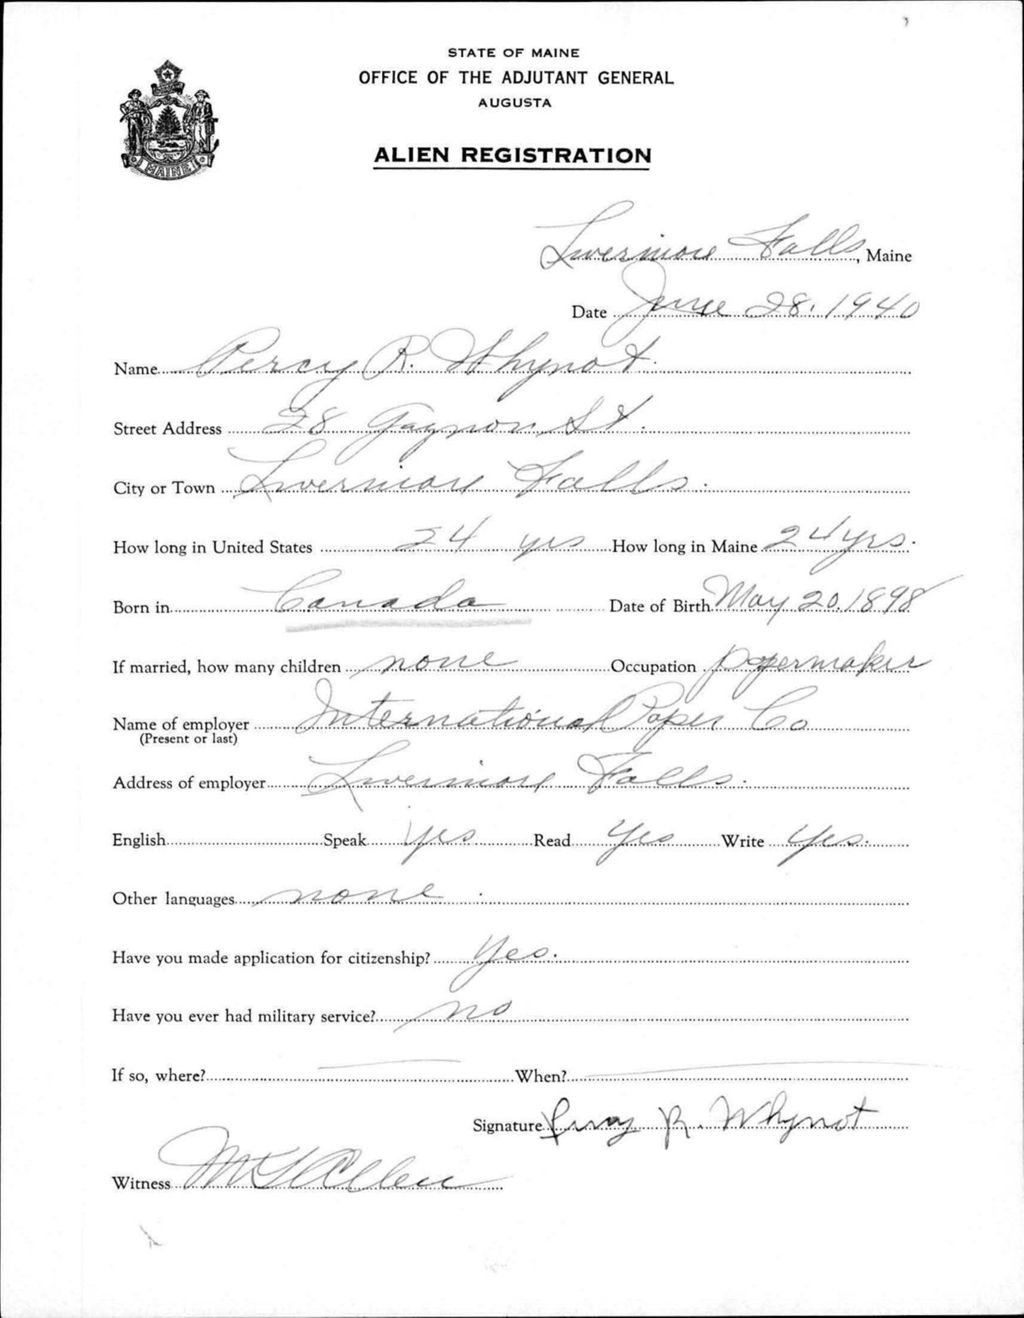 STATE OF MAINE
OFFICE OF THE ADJUTANT GENERAL
AUGUSTA
MAINE
ALIEN REGISTRATION
Livermore Falls, Maine
Date June 28, 1940
Name Percy R. Whynot
Street Address 28 Gagnon St.
City or Town Livermore Falls.
How long in United States 24 yrs How long in Maine 24 yrs.
Born in Canada Date of Birth May 20, 1898
If married, how many children none Occupation papermaker
Name of employer International Paper Co
(Present or last)
Address of employer Livermore Falls.
English Speak yes Read Yes Write Yes.
Other languages none
Have you made application for citizenship? Yes.
Have you ever had military service? no
If so, where? When?
Signature Percy R. Whynot
Witness